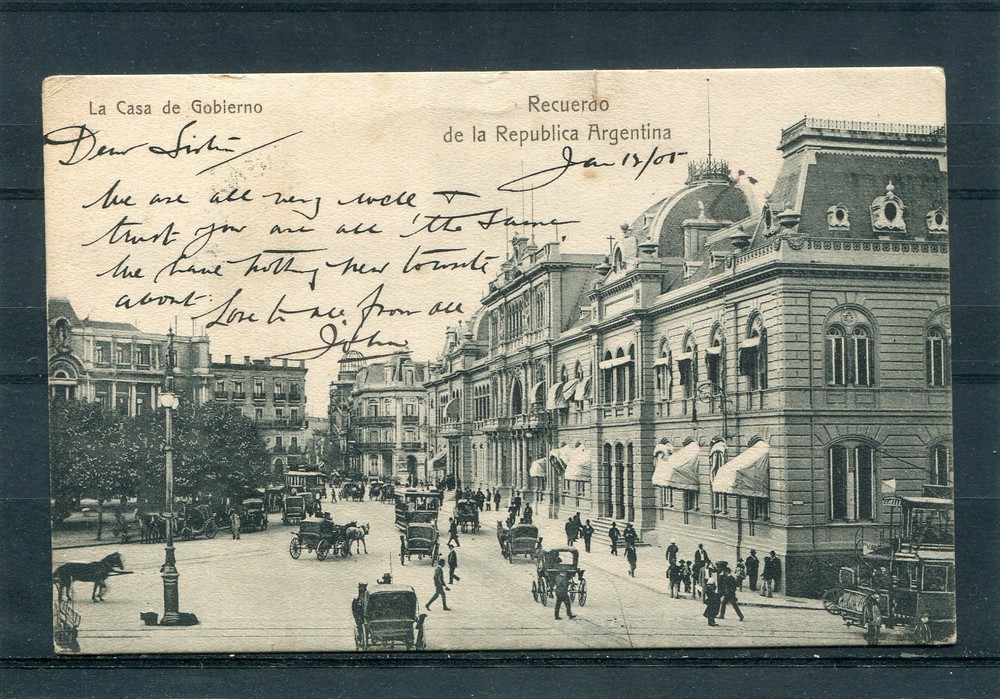 La Casa de Gobierno
Recuerdo
de la Republica Argentina
Jan 18/05
Dear Sister
We are all very well &
trust you are all the same
We have nothing new to write
about. Love to all from all
John